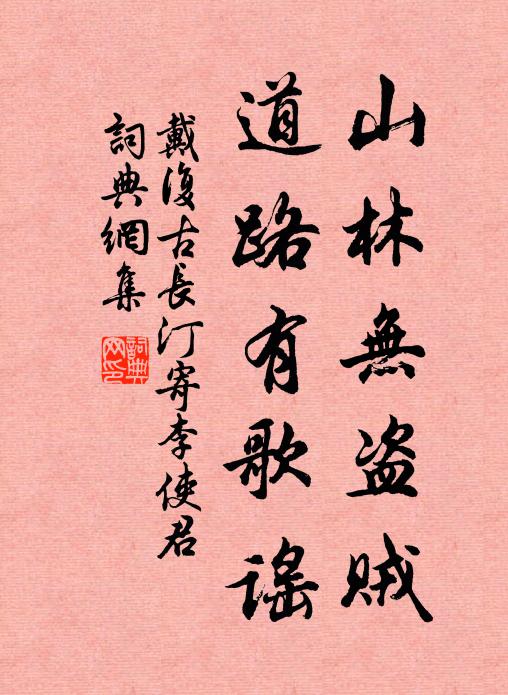 山林無盗賊
道路有歌謡
戴復古長汀寄李使君
詞典網集
詞典網印